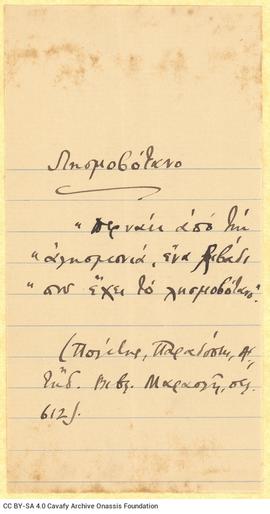 Λησμοβότανο
" περνάει από την
" αλησμονιά, ένα λιβάδι
" που έχει το λησμοβότανο".
(Πολίτης, Παραδόσεις, Α',
Έκδ. Βιβλ. Μαρασλή, σελ.
612).
CC BY-SA 4.0 Cavafy Archive Onassis Foundation